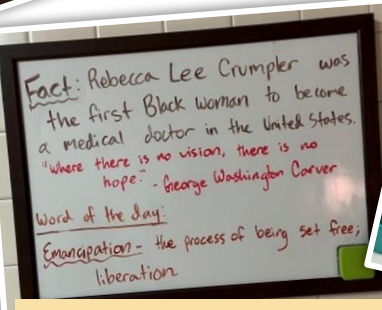 Fact: Rebecca Lee Crumpler was
the first Black woman to become
a medical doctor in the United States.
"Where there is no vision, there is no
hope." - George Washington Carver
Word of the day:
Emancipation - the process of being set free;
liberation